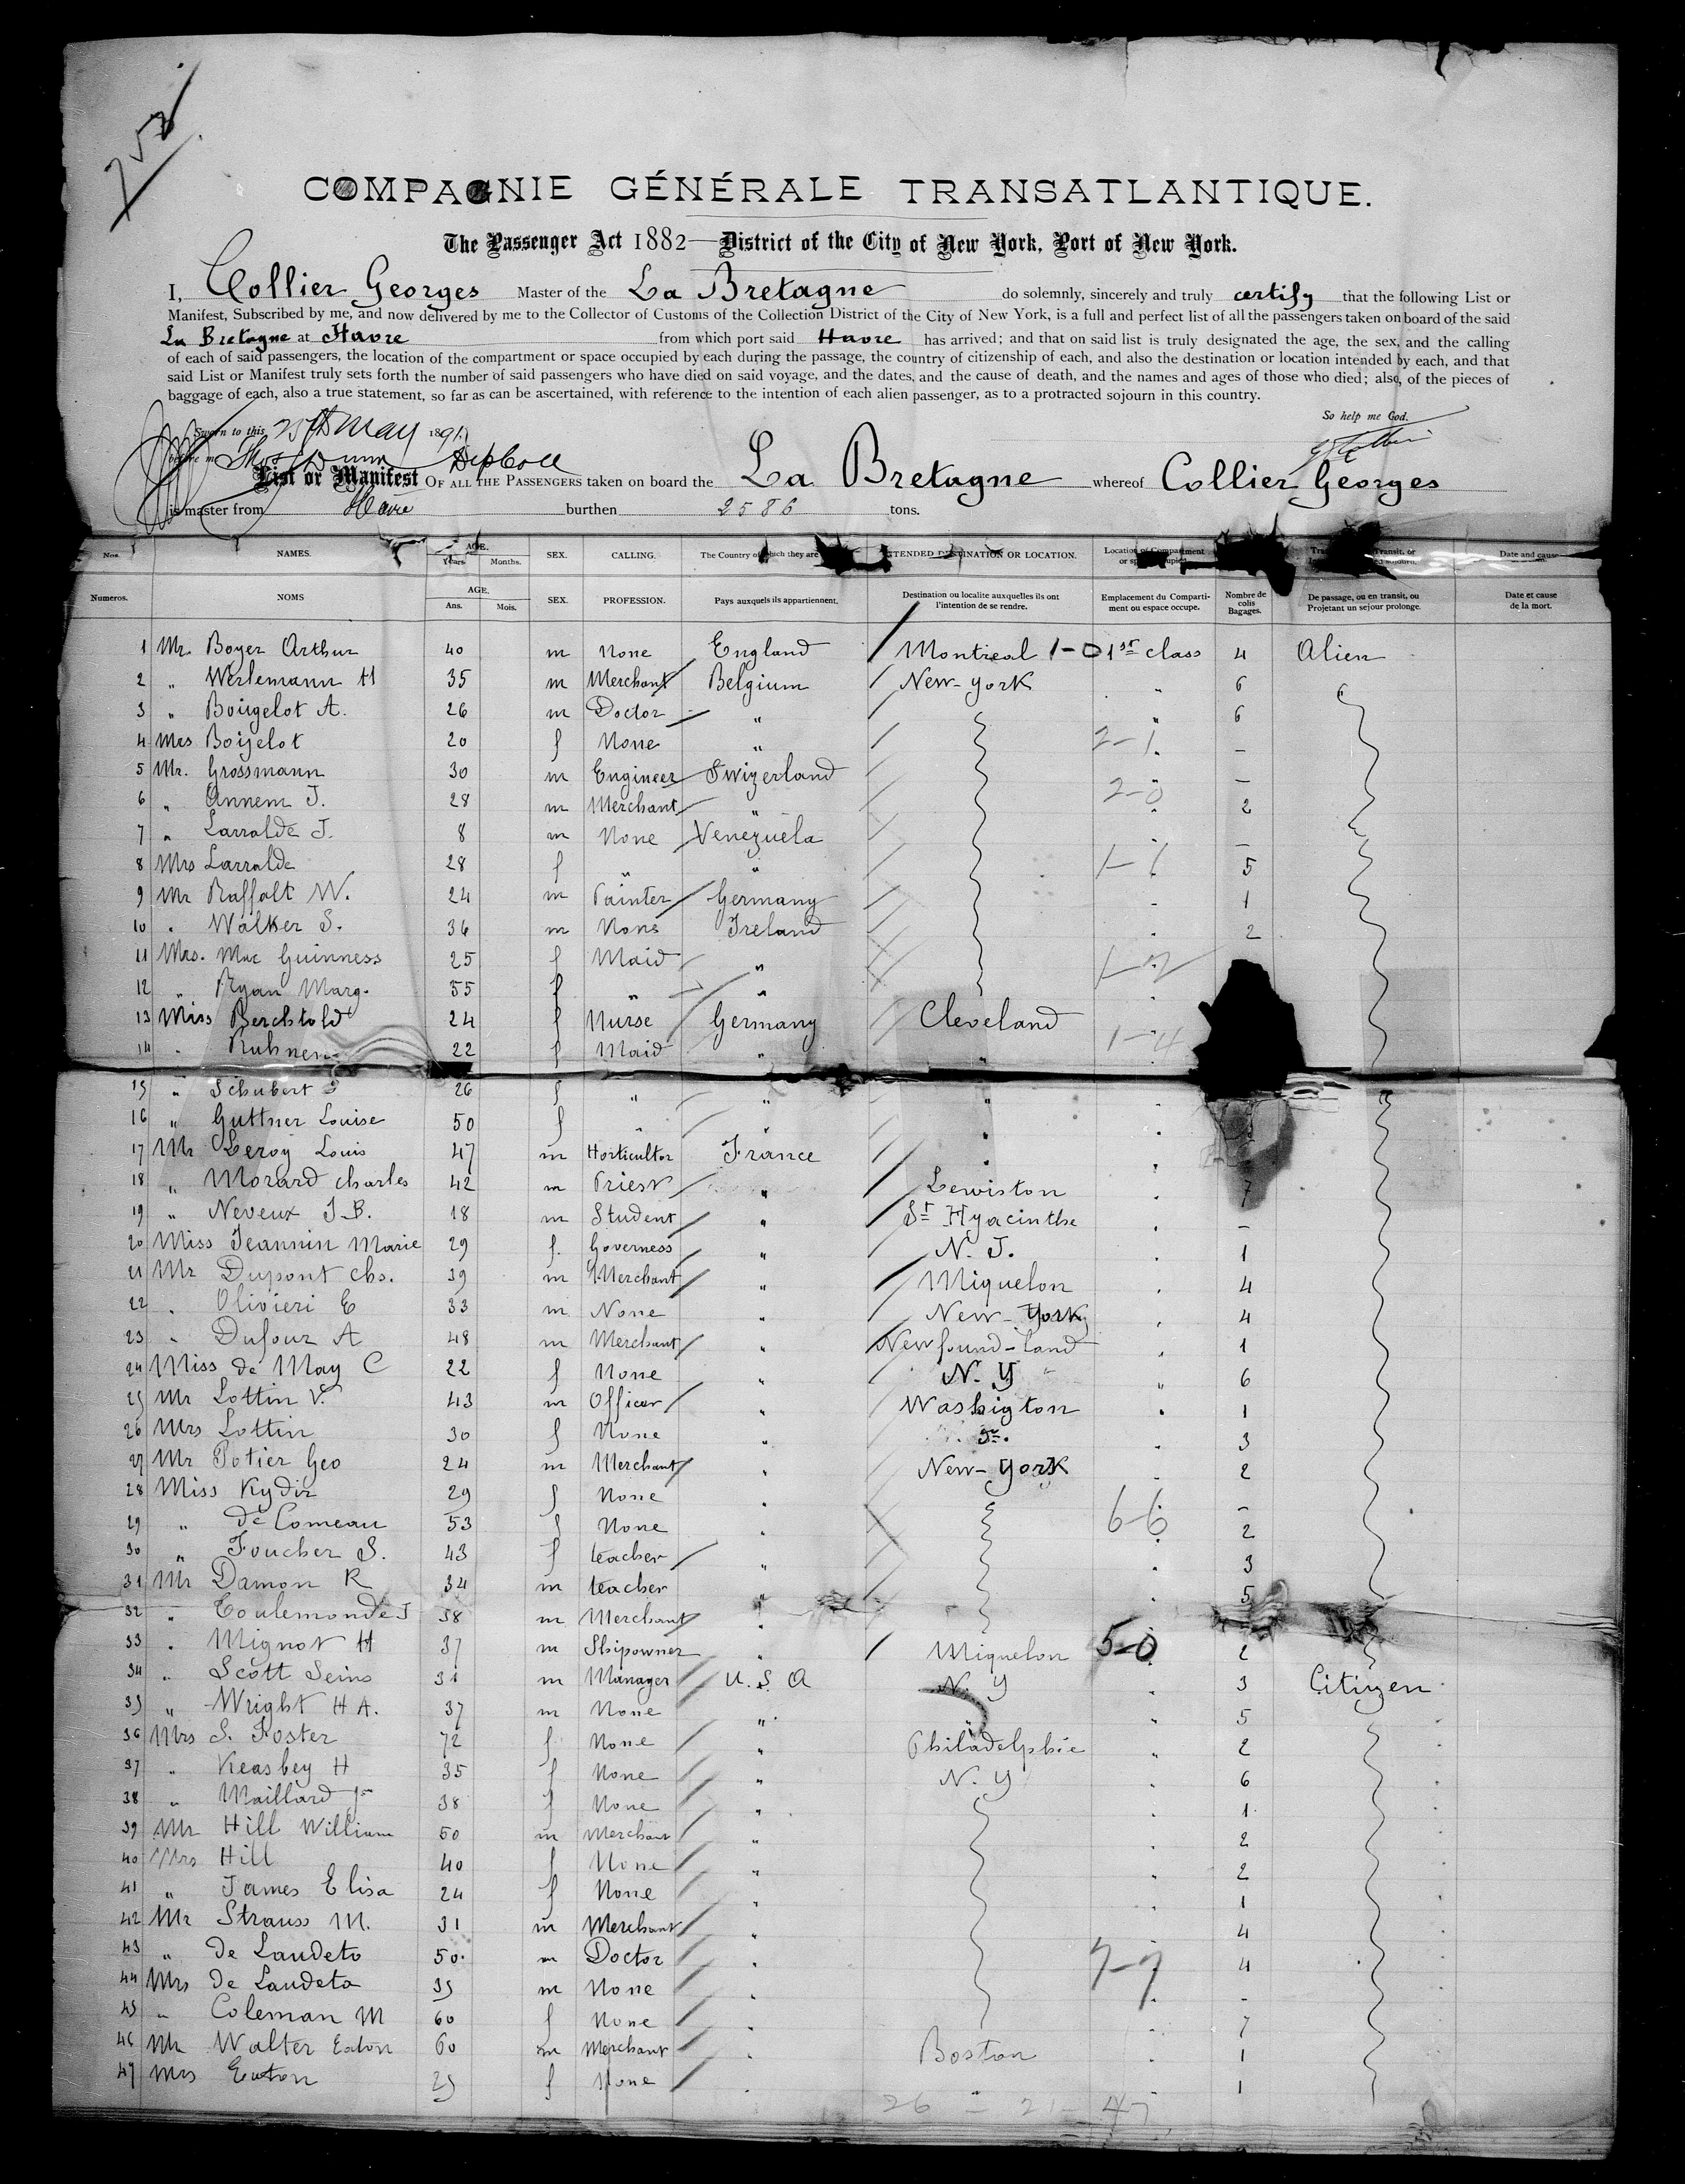 COMPAGNIE GÉNÉRALE TRANSATLANTIQUE.
The Passenger Act 1882—District of the City of New York, Port of New York.
I, Collier Georges Master of the La Bretagne do solemnly, sincerely and truly certify that the following List or
Manifest, Subscribed by me, and now delivered by me to the Collector of Customs of the Collection District of the City of New York, is a full and perfect list of all the passengers taken on board of the said
La Bretagne at Havre from which port said Havre has arrived; and that on said list is truly designated the age, the sex, and the calling
of each of said passengers, the location of the compartment or space occupied by each during the passage, the country of citizenship of each, and also the destination or location intended by each, and that
said List or Manifest truly sets forth the number of said passengers who have died on said voyage, and the dates, and the cause of death, and the names and ages of those who died; also, of the pieces of
baggage of each, also a true statement, so far as can be ascertained, with reference to the intention of each alien passenger, as to a protracted sojourn in this country.
So help me God.
Sworn to this 25th May 1891
List or Manifest OF ALL THE PASSENGERS taken on board the La Bretagne whereof Collier Georges
is master from Havre burthen 2586 tons.
Nos. NAMES. AGE. Years. Months. SEX. CALLING. The Country of which they are INTENDED DESTINATION OR LOCATION. Location of Compartment Transit, or Date and cause
Numeros. NOMS AGE. Ans. Mois. SEX. PROFESSION. Pays auxquels ils appartiennent. Destination ou localite auxquelles ils ont l'intention de se rendre. Emplacement du Compartiment ou espace occupe. Nombre de colis Bagages. De passage, ou en transit, ou Projetant un sejour prolonge. Date et cause de la mort.
1 Mr. Boyer Arthur 40 m None England Montreal 1-0 1st class 4 Alien
2 " Werlemann H 35 m Merchant Belgium New-york " 6
3 " Bougelot A. 26 m Doctor " " 6
4 Mrs Boijelot 20 f None " 2-1 -
5 Mr. Grossmann 30 m Engineer Swizerland " -
6 " Annem J. 28 m Merchant " 2-0 2
7 " Larralde J. 8 m None Venezuela -
8 Mrs Larralde 28 f " " 1-1 5
9 Mr Raffalt W. 24 m Painter Germany 1
10 " Walker S. 36 m None Ireland 2
11 Mrs. Mac Guinness 25 f Maid "
12 " Ryan Marg. 55 f " "
13 Miss Berchtold 24 f Nurse Germany Cleveland
14 " Ruhnen 22 f Maid " " 1-4
15 " Schubert 26 f " " "
16 " Guttner Louise 50 f " " "
17 Mr Leroy Louis 47 m Horticultor France "
18 " Morard charles 42 m Priest " Lewiston 7
19 " Neveux J.B. 18 m Student " St Hyacinthe -
20 Miss Jeannin Marie 29 f. Governess " N. J. 1
21 Mr Dupont chs. 39 m Merchant " Miquelon 4
22 " Olivieri E 33 m None " New-York 4
23 " Dufour A 48 m Merchant " Newfound-land 1
24 Miss de May C 22 f None " N. Y 6
25 Mr Lottin V. 43 m Officer " Washigton 1
26 Mrs Lottin 30 f None " 3
27 Mr Potier Geo 24 m Merchant " New-York 2
28 Miss Kydir 29 f None " -
29 " de Comeau 53 f None " 6-6 2
30 " Foucher S. 43 f teacher " 3
31 Mr Damon R 34 m teacher " 5
32 " Toulemonde J 38 m Merchant "
33 " Mignot H 37 m Shipowner " Miquelon 5-0 2
34 " Scott Seins 31 m Manager U. S. A N. Y 3 Citizen
35 " Wright H A. 37 m None " " 5
36 Mrs S. Foster 72 f None " Philadelphie " 2
37 " Keasbey H 35 f None " N. Y 6
38 " Maillard 38 f None " 1
39 Mr Hill William 50 m Merchant " 2
40 Mrs Hill 40 f None " 2
41 " James Elisa 24 f None " 1
42 Mr Strauss M. 31 m Merchant " 4
43 " de Laudeto 50. m Doctor " 7-7 4
44 Mrs de Laudeto 35 m None " -
45 " Coleman M 60 f None " 7
46 Mr Walter Eaton 60 m Merchant " Boston 1
47 Mrs Eaton 25 f None " " 1
26 - 21 - 47